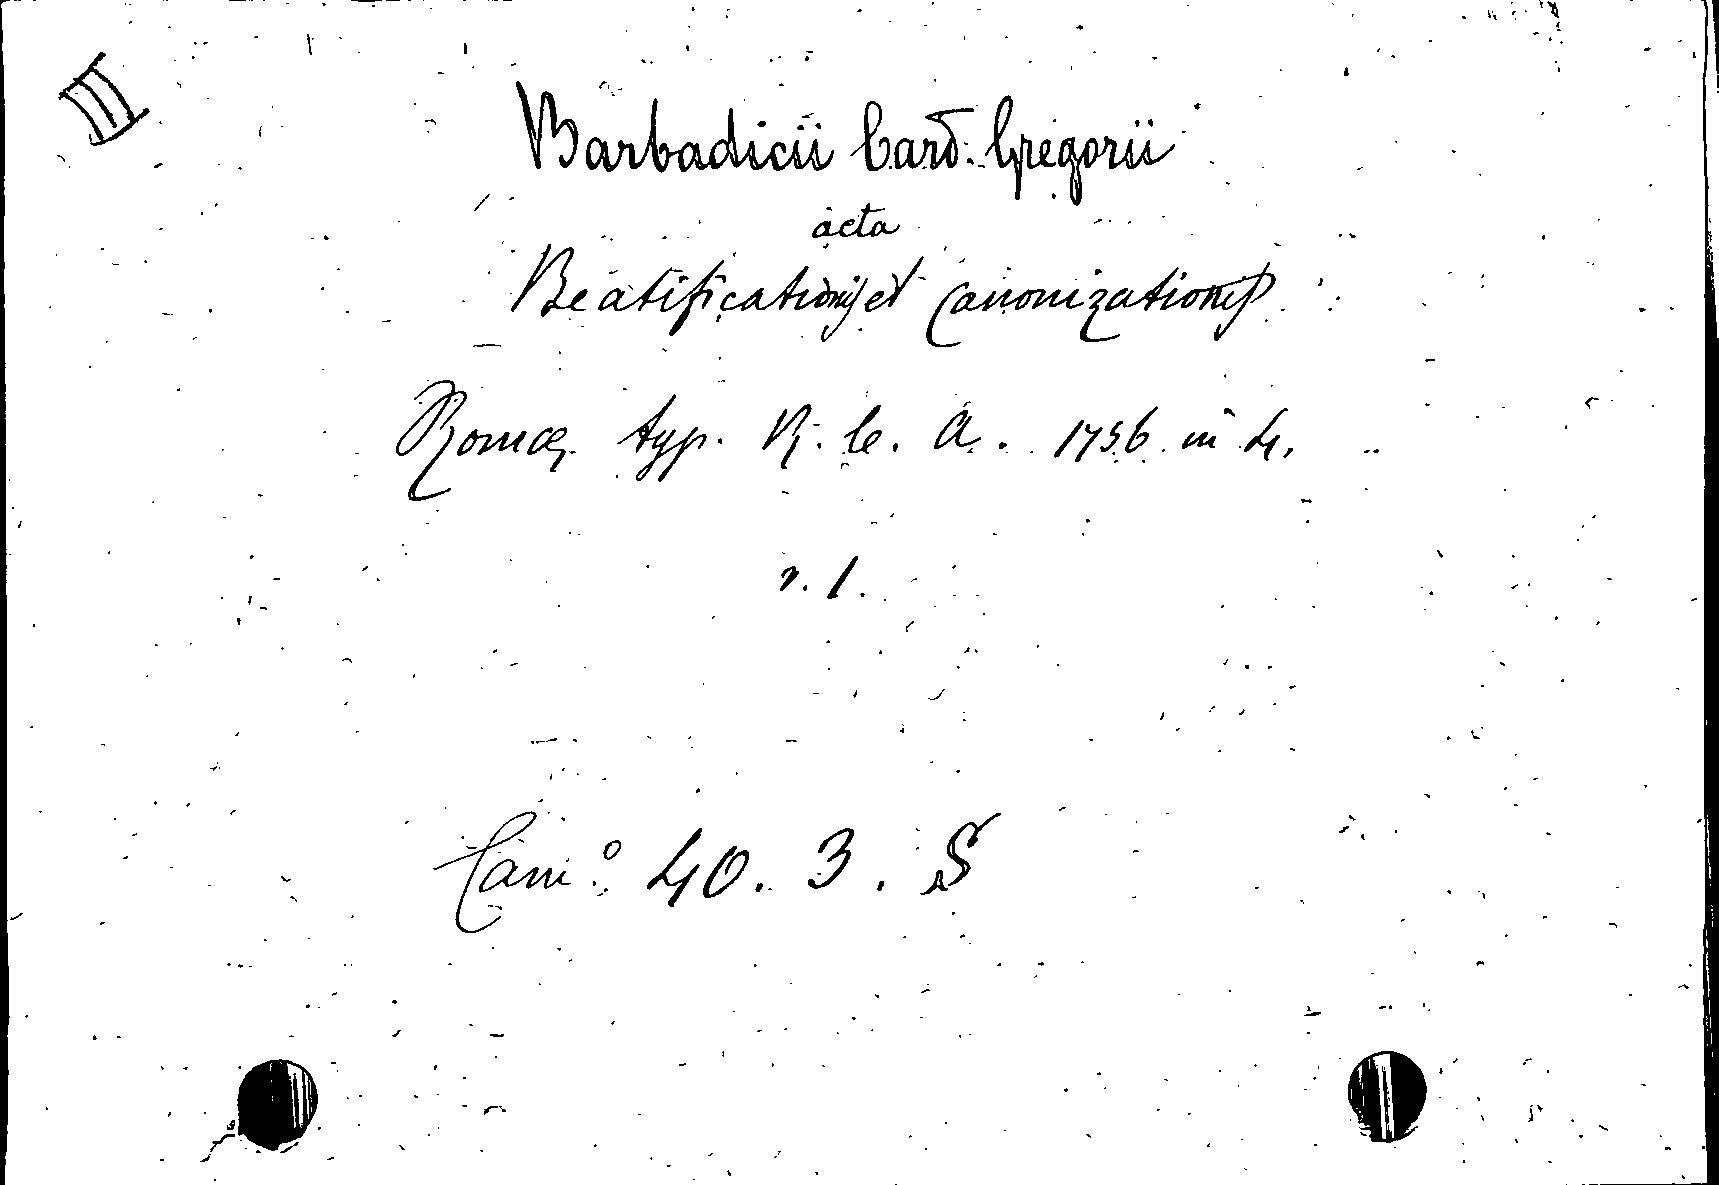 III
Barbadicii Card. Gregorii
acta
Beatificationis et Canonizationis
Romæ typ. R. C. A. 1756 in 4.
v. 1.
Cam.º 40. 3. S